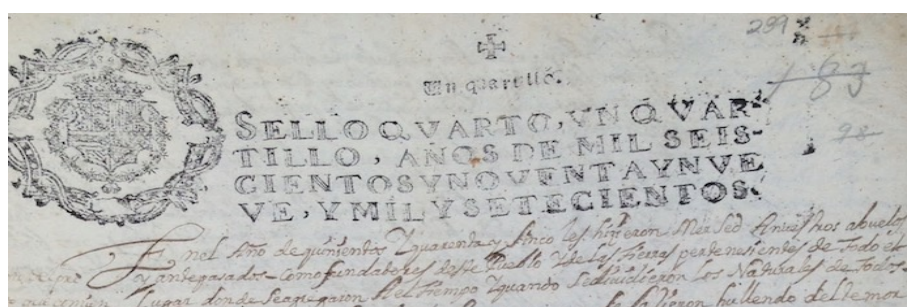 299
Un quartillo.
83
98
SELLO QVARTO, VN QVAR-
TILLO, AÑOS DE MIL SEIS-
CIENTOS Y NOVENTA Y NVE
VE, Y MIL Y SETECIENTOS.
En el Año de quinientos y quarenta y sinco les hisieron Mersed Anuestros abuelos
y antepasados Como fundadores deste Pueblo y de las tierras pertenesientes de Todo el
Lugar donde Seagregaron El tiempo y quando Sediuidieron los Naturales de Todos